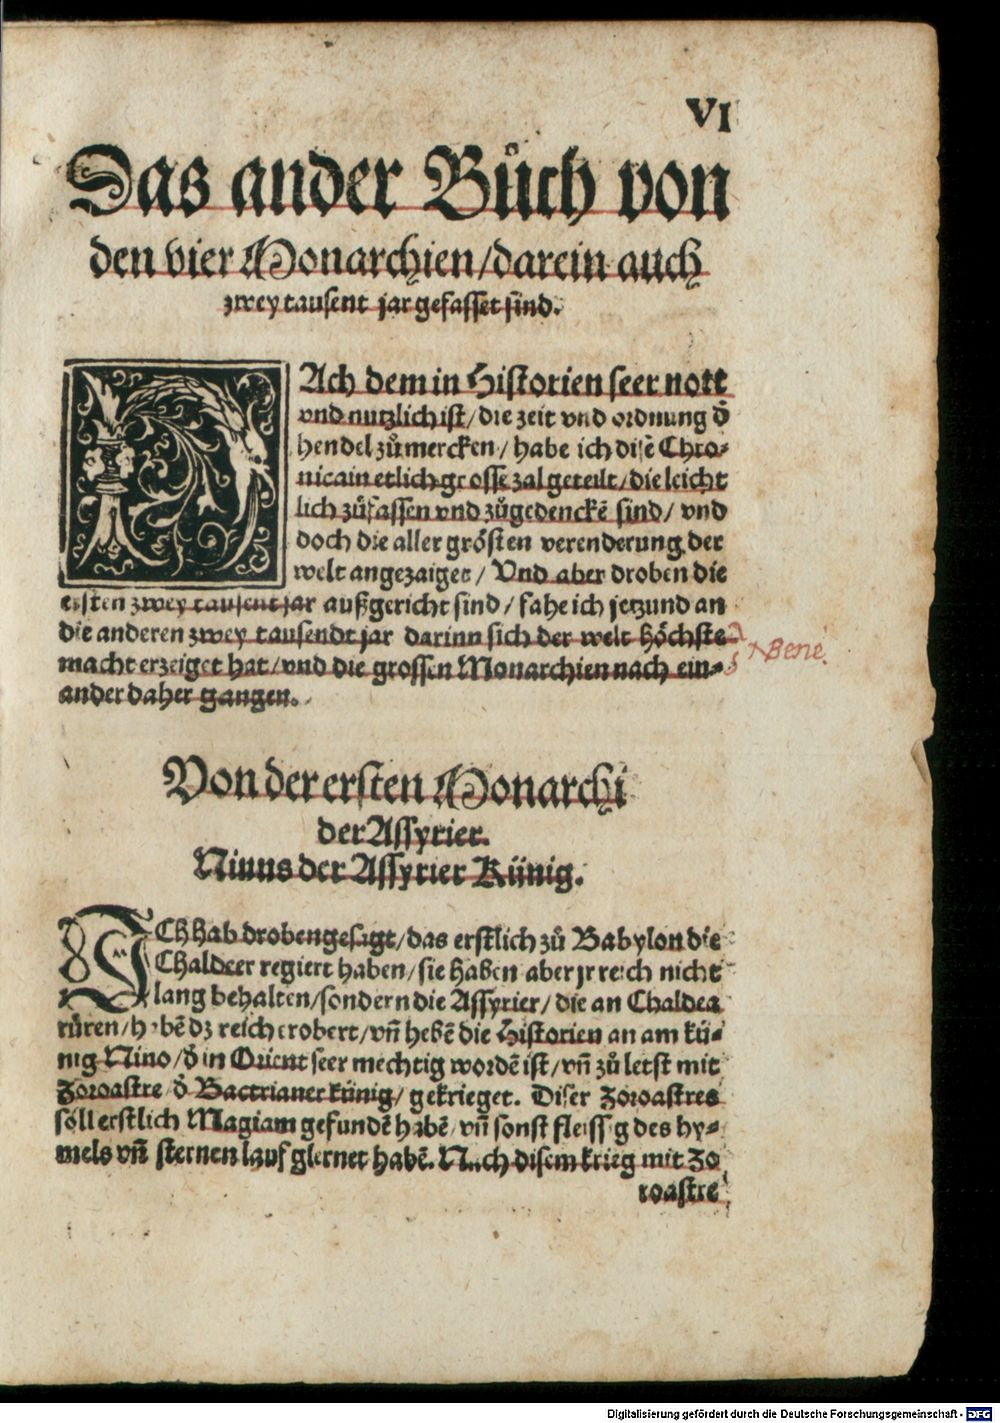 VI
Das ander Bůch von
den vier Monarchien/darein auch
zwey tausent jar gefasset sind.
NAch dem in Historien seer nott
vnd nutzlich ist/die zeit vnd ordnung d̕
hendel zů mercken/ habe ich disē Chro⸗
nica in etlich grosse zal geteilt/die leicht
lich zů fassen vnd zů gedenckē sind/ vnd
doch die aller grösten verenderung der
welt angezaiget/ Vnd aber droben die
ersten zwey tausent jar außgericht sind/ fahe ich jetzund an
die anderen zwey tausendt jar darinn sich der welt höchste
macht erzeiget hat/vnd die grossen Monarchien nach ein⸗
ander daher gangen.
Bene.
Von der ersten Monarchi
der Assyrier.
Ninus der Assyrier Künig.
ICh hab droben gesagt/das erstlich zů Babylon die
Chaldeer regiert haben/sie haben aber jr reich nicht
lang behalten/sondern die Assyrier/ die an Chaldea
rüren/habē dz reich erobert/vn̄ hebē die Historien an am kü⸗
nig Nino/d̕ in Orient seer mechtig wordē ist/vn̄ zů letst mit
Zoroastre/d̕ Bactrianer künig/ gekrieget. Diser Zoroastres
soll erstlich Magiam gefundē habē/vn̄ sonst fleissig des hy⸗
mels vn̄ sternen lauf glernet habē. Nach disem krieg mit Zo
roastre
Digitalisierung gefördert durch die Deutsche Forschungsgemeinschaft - DFG